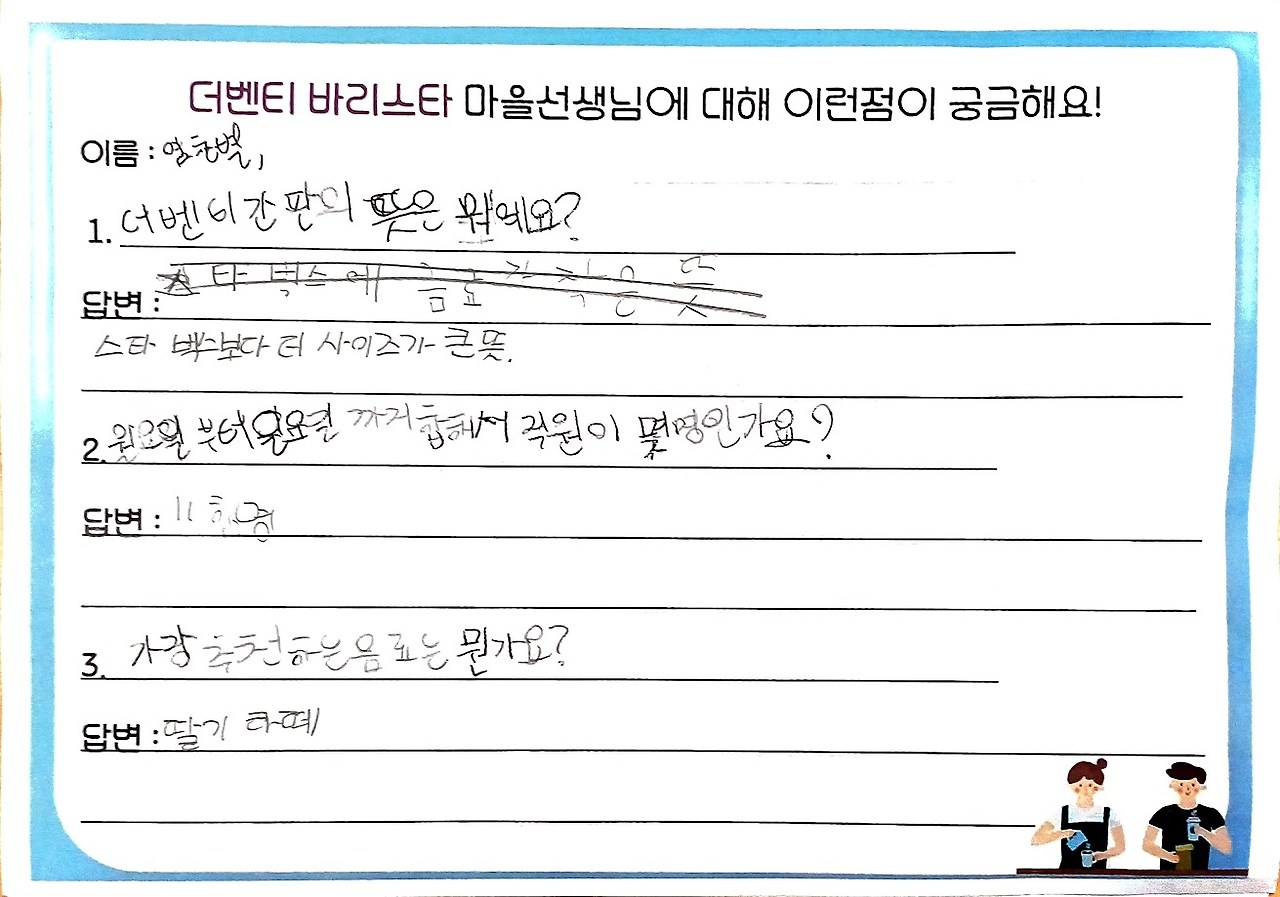 더벤티 바리스타 마을선생님에 대해 이런점이 궁금해요!
이름 : 염찬별,
1. 더벤티간판의 뜻은 뭐예요?
답변 : 스타벅스에 음료가 작은 뜻
스타 벅스보다 더 사이즈가 큰뜻.
2. 월요일 부터 일요일 까지 합해서 직원이 몇명인가요?
답변 : 11
3. 가장 추천하는음료는 뭔가요?
답변 : 딸기 라떼